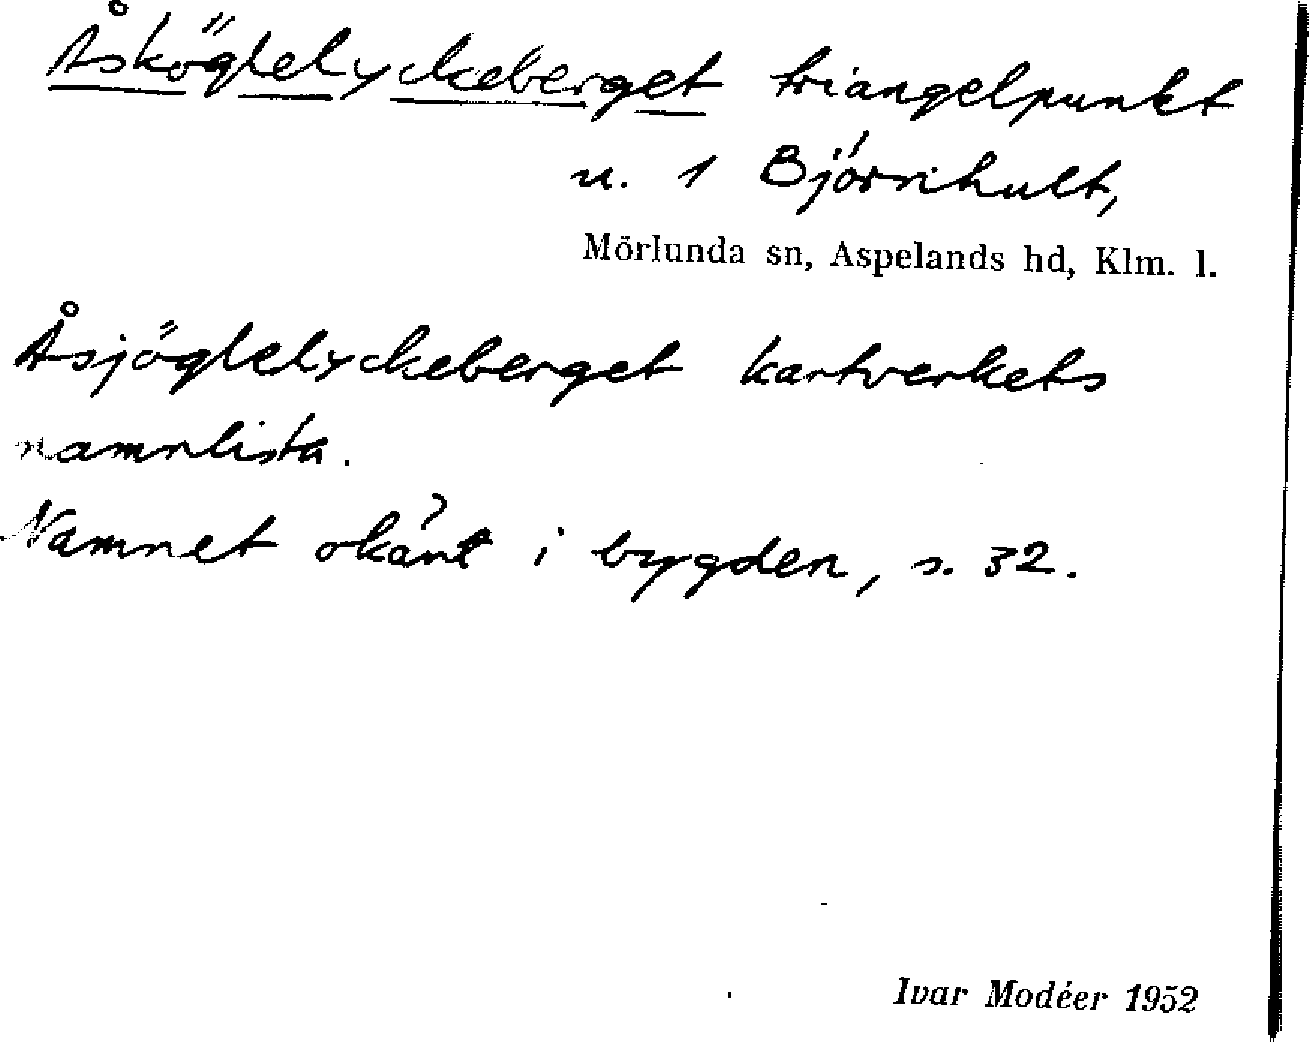 Åsköglelyckeberget triangelpunkt
u. 1 Björnhult,
Mörlunda sn, Aspelands hd, Klm. l.
Åsjöglelyckeberget kartverkets
namnlista.
Namnet okänt i bygden, s. 32.
Ivar Modéer 1952